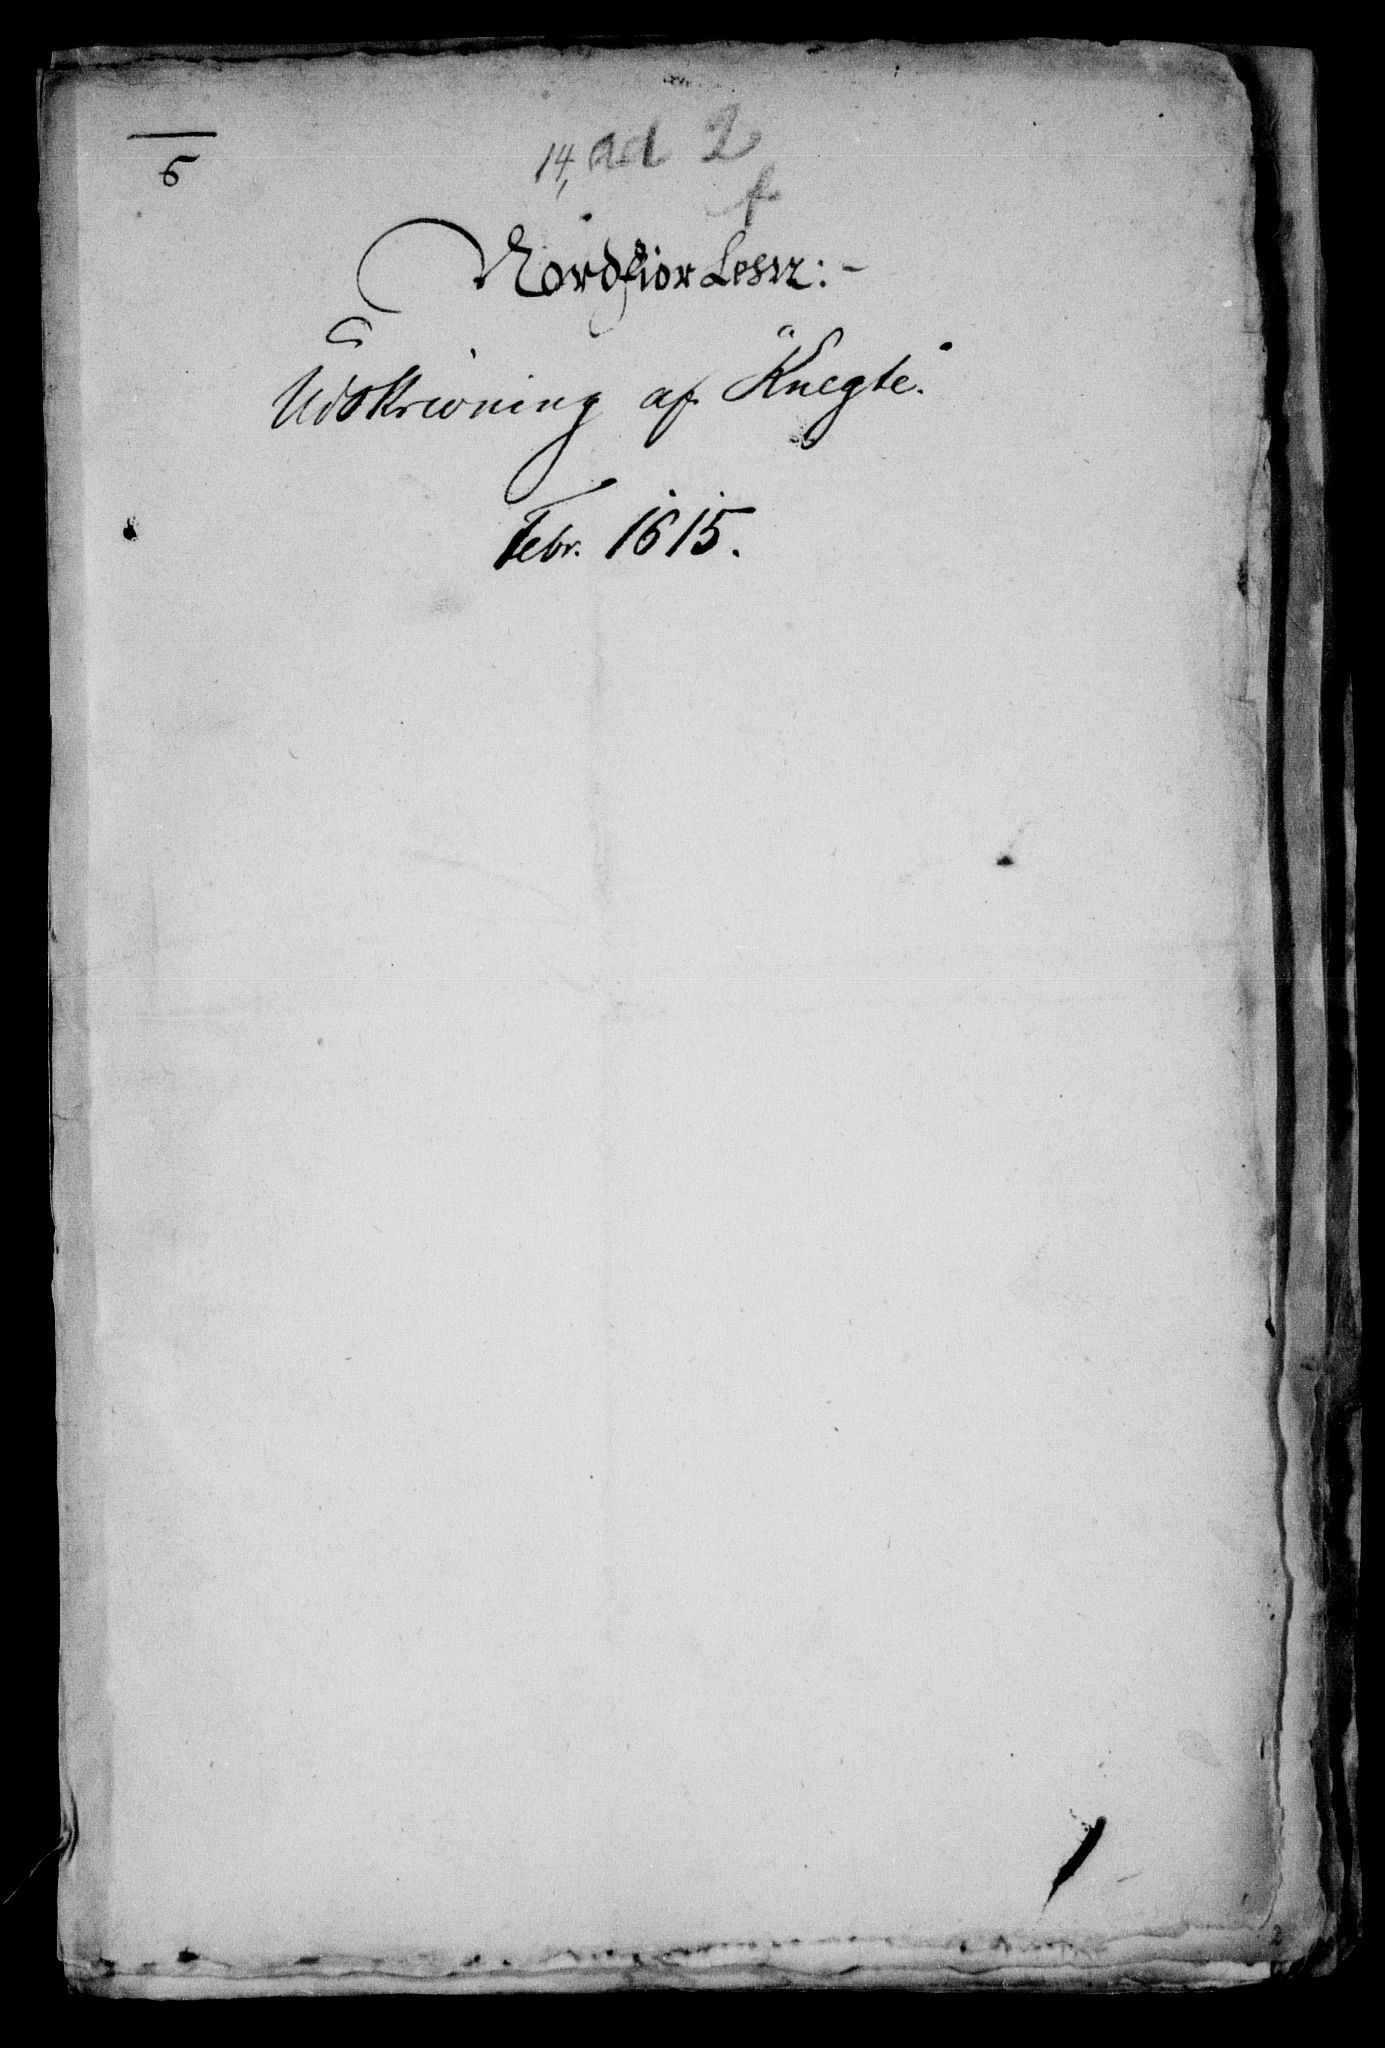 6
14, ad 2
f
Nordfior Lehn:
Udskrivning af Knegte.
Febr. 1615.